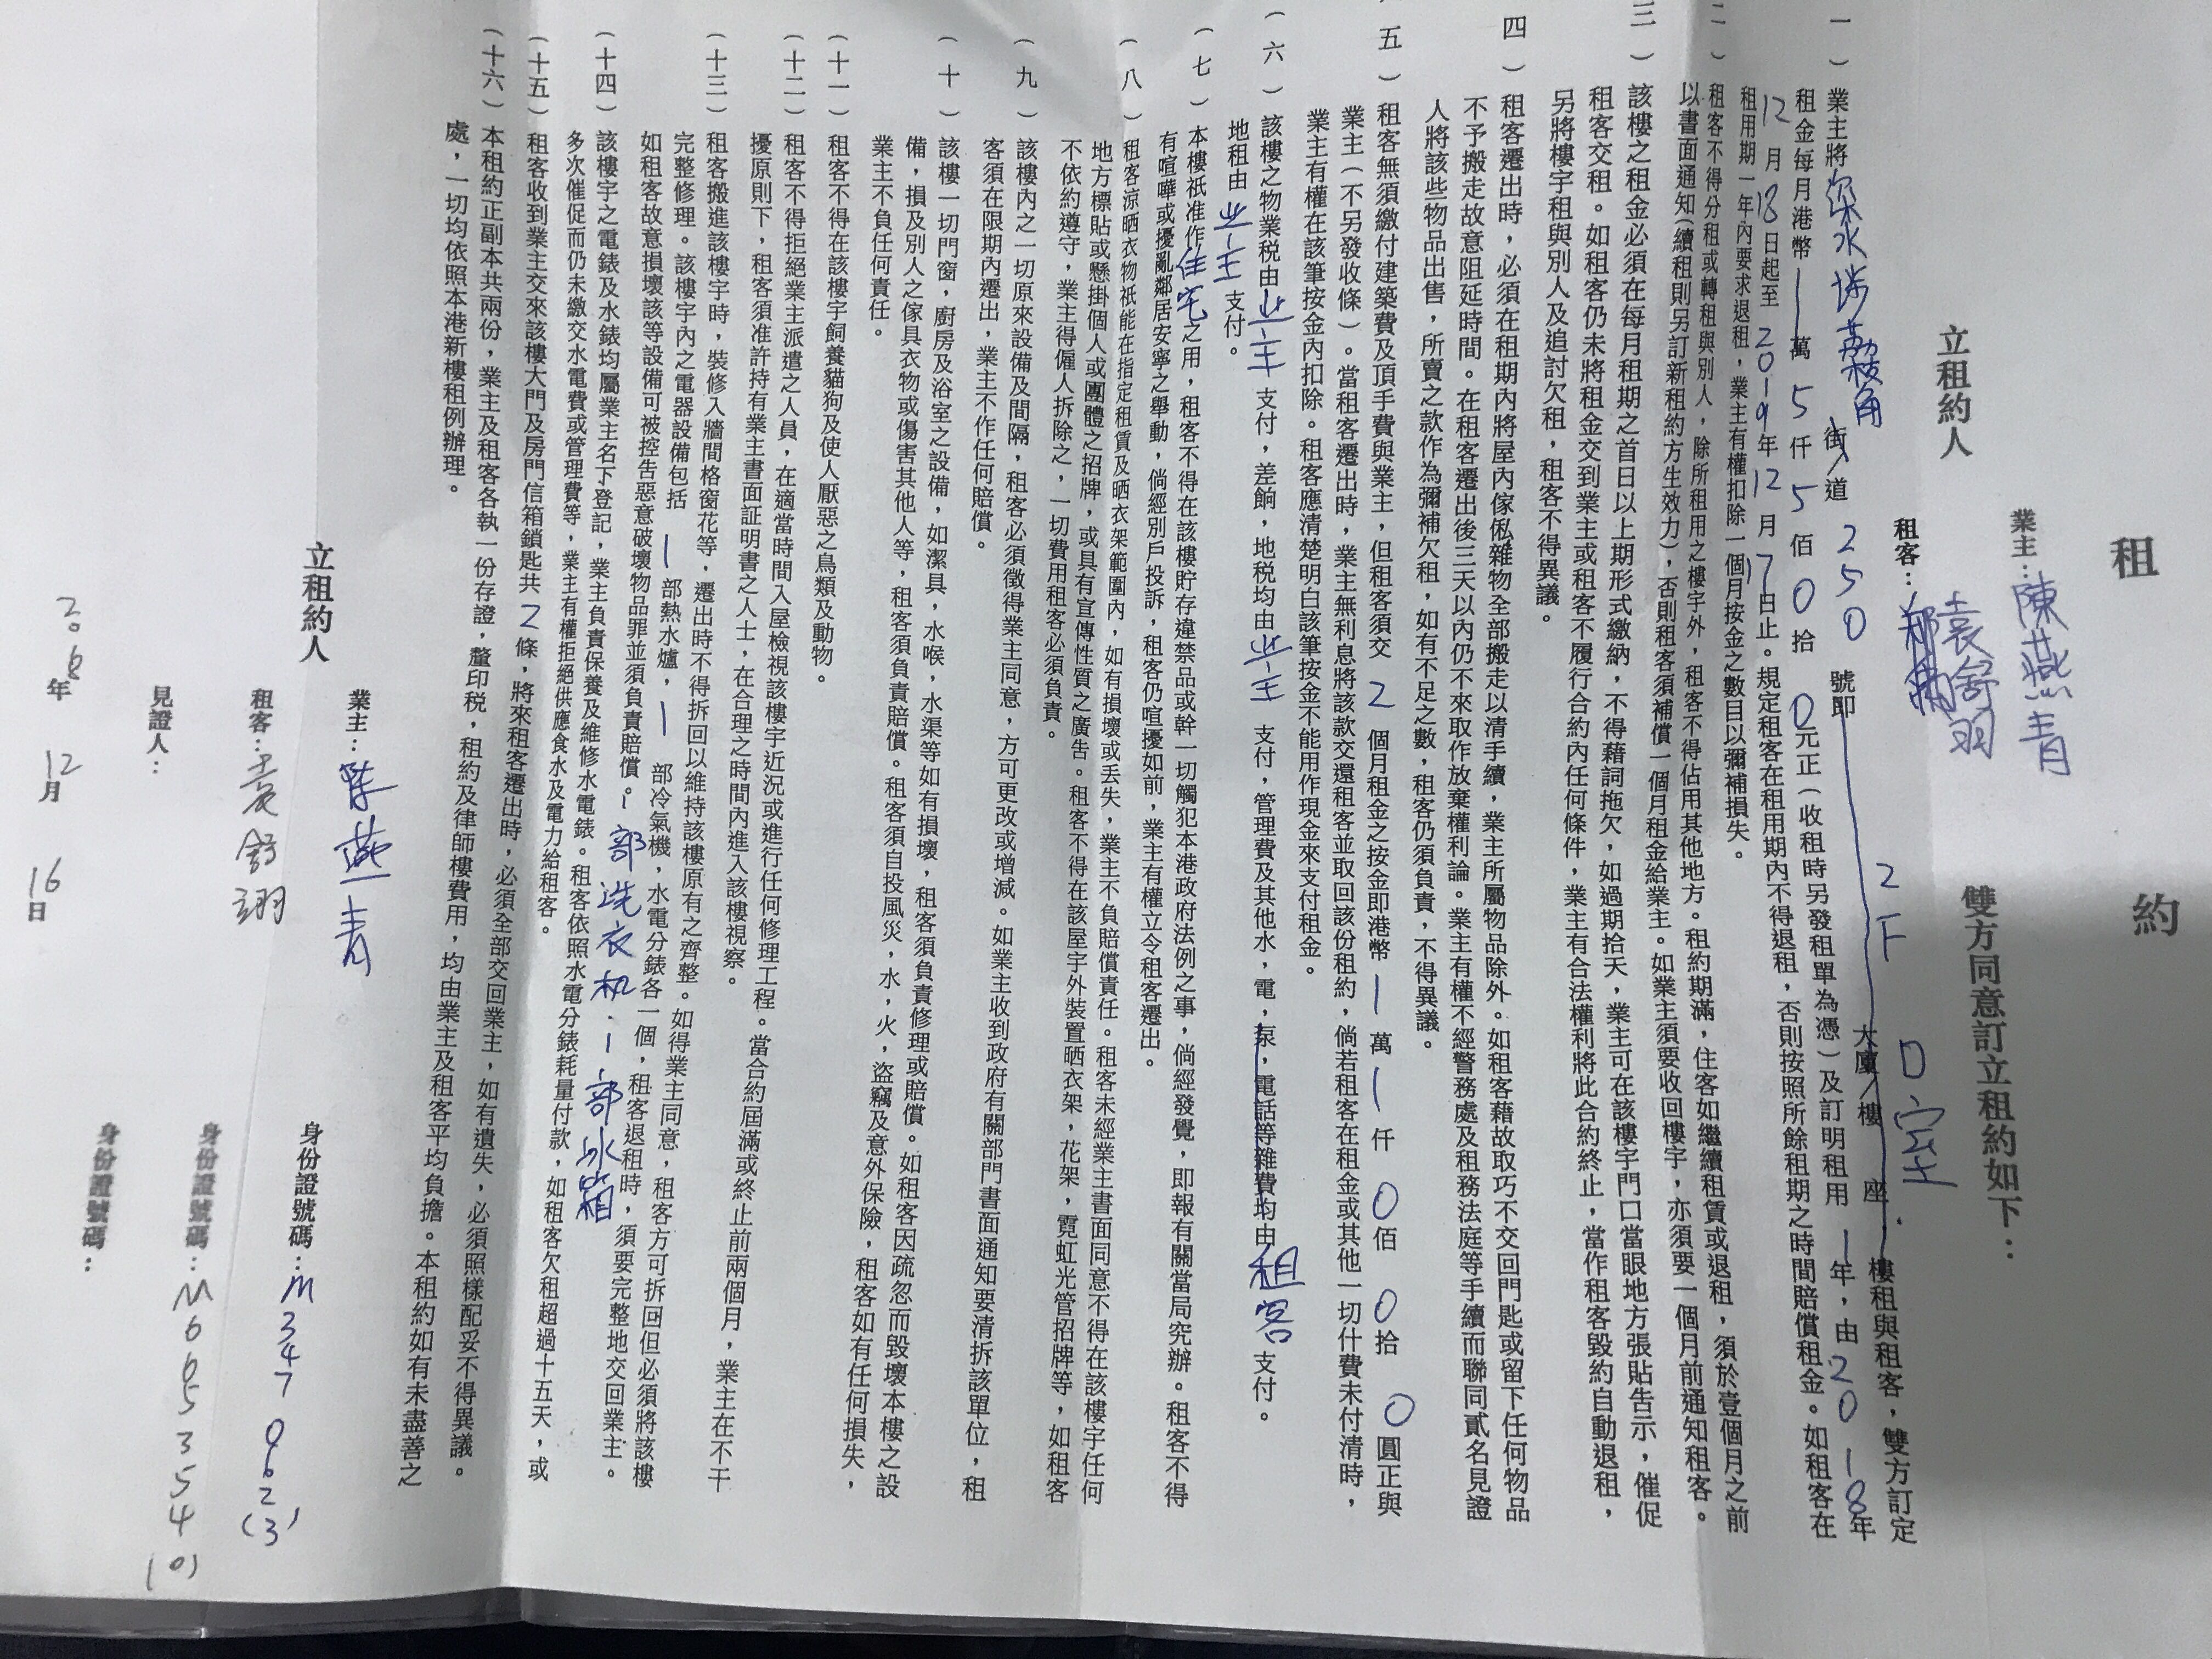 租 約
業主：陳燕青
立租約人 雙方同意訂立租約如下：
租客：袁舒羽
（一）業主將深水埗荔枝角街/道 250 號即 2F D室 大廈/樓 座 樓租與租客，雙方訂定
租金每月港幣一萬5仟5佰0拾0元正（收租時另發租單為憑）及訂明租用1年，由2018年
12月18日起至2019年12月17日止。規定租客在租用期內不得退租，否則按照所餘租期之時間賠償租金。如租客在
租用期一年內要求退租，業主有權扣除一個月按金之數目以彌補損失。
（二）租客不得分租或轉租與別人，除所租用之樓宇外，租客不得佔用其他地方。租約期滿，住客如繼續租賃或退租，須於壹個月之前
以書面通知（續租則另訂新租約方生效力），否則租客須補償一個月租金給業主。如業主須要收回樓宇，亦須要一個月前通知租客。
（三）該樓之租金必須在每月租期之首日以上期形式繳納，不得藉詞拖欠，如過期拾天，業主可在該樓宇門口當眼地方張貼告示，催促
租客交租。如租客仍未將租金交到業主或租客不履行合約內任何條件，業主有合法權利將此合約終止，當作租客毀約自動退租，
另將樓宇租與別人及追討欠租，租客不得異議。
（四）租客遷出時，必須在租期內將屋內傢俬雜物全部搬走以清手續，業主所屬物品除外。如租客藉故取巧不交回門匙或留下任何物品
不予搬走故意阻延時間。在租客遷出後三天以內仍不來取作放棄權利論。業主有權不經警務處及租務法庭等手續而聯同貳名見證
人將該些物品出售，所賣之款作為彌補欠租，如有不足之數，租客仍須負責，不得異議。
（五）租客無須繳付建築費及頂手費與業主，但租客須交2個月租金之按金即港幣一萬一仟0佰0拾0圓正與
業主（不另發收條）。當租客遷出時，業主無利息將該款交還租客並取回該份租約，倘若租客在租金或其他一切什費未付清時，
業主有權在該筆按金內扣除。租客應清楚明白該筆按金不能用作現金來支付租金。
（六）該樓之物業稅由业主支付，差餉，地稅均由业主支付，管理費及其他水，電，泵，電話等雜費均由租客支付。
地租由业主支付。
（七）本樓祇准作住宅之用，租客不得在該樓貯存違禁品或幹一切觸犯本港政府法例之事，倘經發覺，即報有關當局究辦。租客不得
有喧嘩或擾亂鄰居安寧之舉動，倘經別戶投訴，租客仍喧擾如前，業主有權立令租客遷出。
（八）租客涼晒衣物祇能在指定租賃及晒衣架範圍內，如有損壞或丟失，業主不負賠償責任。租客未經業主書面同意不得在該樓宇任何
地方標貼或懸掛個人或團體之招牌，或具有宣傳性質之廣告。租客不得在該屋宇外裝置晒衣架，花架，霓虹光管招牌等，如租客
不依約遵守，業主得僱人拆除之，一切費用租客必須負責。
（九）該樓內之一切原來設備及間隔，租客必須徵得業主同意，方可更改或增減。如業主收到政府有關部門書面通知要清拆該單位，租
客須在限期內遷出，業主不作任何賠償。
（十）該樓一切門窗，廚房及浴室之設備，如潔具，水喉，水渠等如有損壞，租客須負責修理或賠償。如租客因疏忽而毀壞本樓之設
備，損及別人之傢具衣物或傷害其他人等，租客須負責賠償。租客須自投風災，水，火，盜竊及意外保險，租客如有任何損失，
業主不負任何責任。
（十一）租客不得在該樓宇飼養貓狗及使人厭惡之鳥類及動物。
（十二）租客不得拒絕業主派遣之人員，在適當時間入屋檢視該樓宇近況或進行任何修理工程。當合約屆滿或終止前兩個月，業主在不干
擾原則下，租客須准許持有業主書面証明書之人士，在合理之時間內進入該樓視察。
（十三）租客搬進該樓宇時，裝修入牆間格窗花等，遷出時不得拆回以維持該樓原有之齊整。如得業主同意，租客方可拆回但必須將該樓
完整修理。該樓宇內之電器設備包括一部熱水爐，一部冷氣機，水電分錶各一個，租客退租時，須要完整地交回業主。
如租客故意損壞該等設備可被控告惡意破壞物品罪並須負責賠償。1部洗衣机．1部冰箱
（十四）該樓宇之電錶及水錶均屬業主名下登記，業主負責保養及維修水電錶。租客依照水電分錶耗量付款，如租客欠租超過十五天，或
多次催促而仍未繳交水電費或管理費等，業主有權拒絕供應食水及電力給租客。
（十五）租客收到業主交來該樓大門及房門信箱鎖匙共2條，將來租客遷出時，必須全部交回業主，如有遺失，必須照樣配妥不得異議。
（十六）本租約正副本共兩份，業主及租客各執一份存證，釐印稅，租約及律師樓費用，均由業主及租客平均負擔。本租約如有未盡善之
處，一切均依照本港新樓租例辦理。
立租約人
業主：陈燕青 身份證號碼：M347062(3)
租客：袁舒翊 身份證號碼：M665354(0)
見證人： 身份證號碼：
2018年12月16日